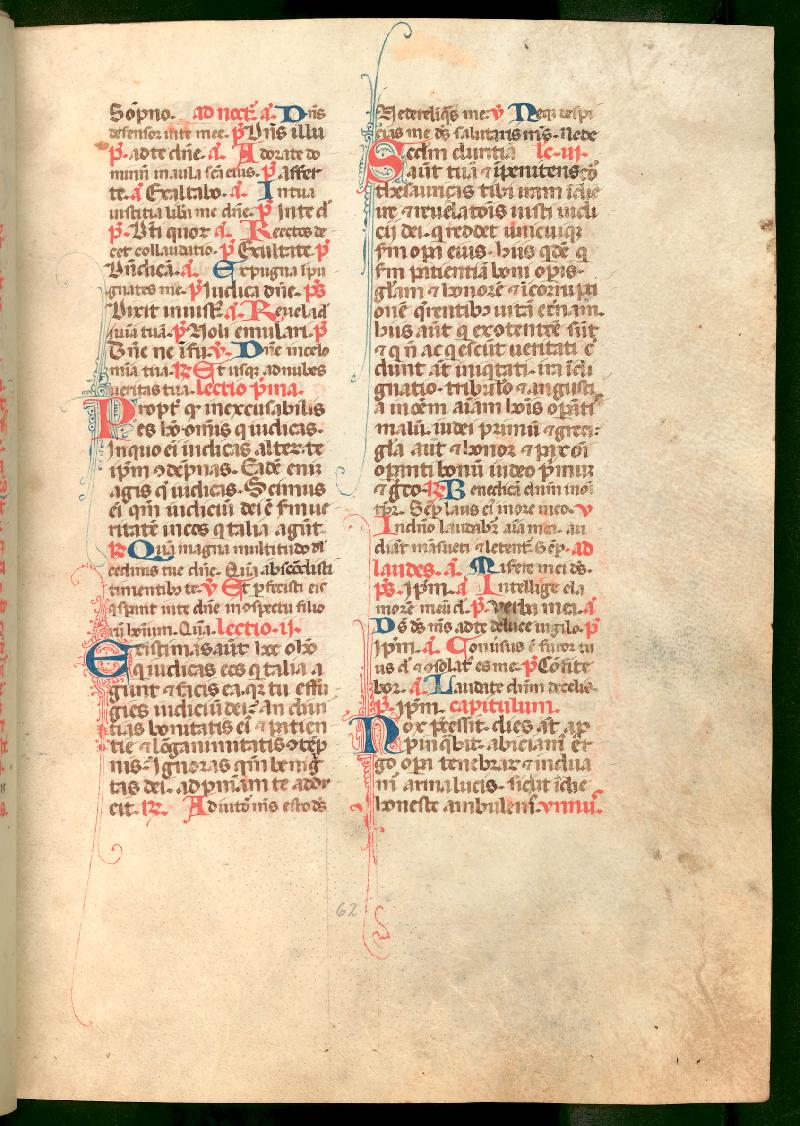 Sōpno. ad noct̄. a̅. Dn̄s
defensor uite mee. p̄ Dn̄s illu
p̄. ad te dn̄e. a̅. Adorate do
minū in aula sc̄a eius. p̄. affer
te. a̅ Exaltabo. a̅. In tua
iustitia libͣ me dn̄e. p̄ In te d̄
p̄. Bt̄i quor̄ a̅. Rectos de
cet collaudatio. p̄ Exultate. p̄
Bn̄dicā. a̅. Expugna īpu
gnātes me. p̄ Iudica dn̄e. ps̄
Dixit iniust̄. a̅. Reuela d̄
uiā tuā. p̄ Noli emulari. p̄
Dn̄e ne ī fu. v̄. Dn̄e in celo
mīa tua. R̄ Et usq̄. ad nubes
ueritas tua. lectio p̄ma.
Propt̄ q̄ inexcusabilis
es ho. omīs q̄ iudicas.
In quo ei iudicas alter. te
ip̄m ꝯdēpnas. Eadē eni
agis q̄ iudicas. Scimus
ei qm̄ iudiciū dei ē scd̄m ue
ritatē in eos q̄ talia agūt.
R̄ Quā magna multitudo dl̄
cedinis tue dn̄e. Quā abscōdisti
timentibꝫ te. v̄ Et p̄fecisti eis
q̄ sperant in te dn̄e in ꝯspectu filio
rū hoīum. Quā. lectio. ii.
Existimas aūt hec o hō
q̄ iudicas eos q̄ talia a
gunt & facis ea. q̄ tu effu
gies iudiciū dei? an diui
tias bonitatis ei & patien
tie & lōganimitatis ꝯtēp
nis? Ignoras qm̄ benig
tas dei. ad pn̄iam te addu
cit. R̄. Adiuto m̄s esto ds̄
Ne derelīq̄s me. v̄ Neq̄ despi
cias me ds̄ salutaris m̄s. Ne de
Scd̄m duritiā lc̄. iii.
aūt tuā & īpenitens cō
thesaurizas tibi iram ī die
ire & reuelatōis iusti iudi
cij dei. q̄ reddet unicuiq̄
scd̄m opa eius. hiis q̄dē q̄
scd̄m patientiā boni opis.
gl̄am & honorē & īcorrupti
onē q̄rentibꝫ uitā et̄nam.
hiis aūt q̄ ex ꝯtentōe sūt
& q̄ n̄ acq̄escūt ueritati c̄
dunt aūt iniq̄tati. ira ī di
gnatio. tribulō & angustia
ī om̄em aīam hoīs op̄ati
malū. iudei primū & greci.
gl̄a aūt & honor & pax oī
op̄anti bonū iudeo p̄mum
& gᵉco. R̄ Benedicā dn̄um in oī
tp̄r. Sēp laus ei' in ore meo. v̄
In dn̄o laudabr̄ aīa mea. au
diāt māsueti & letent̄. Sēp. ad
laudes. a̅. Misere mei ds̄.
ps̄. Ip̄m. a̅ Intellige cla
morē meū d̄. p̄. Verba mea. a̅
Ds̄ ds̄ m̄s ad te de luce uigilo. p̄
Ip̄m. a̅. Conūsus ē furor tu
us d̄ & ꝯsolat' es me. p̄ Cōfite
bor. a̅. Laudate dn̄m de celis.
p̄. Ip̄m. capitulum.
Nox p̄cessit. dies aūt ap̄
p̄inq̄bit. abiciam' er
go opa tenebrar̄ & indua
m̄ arma lucis. sicut ī die
honeste ambulem'. ymnus.
62